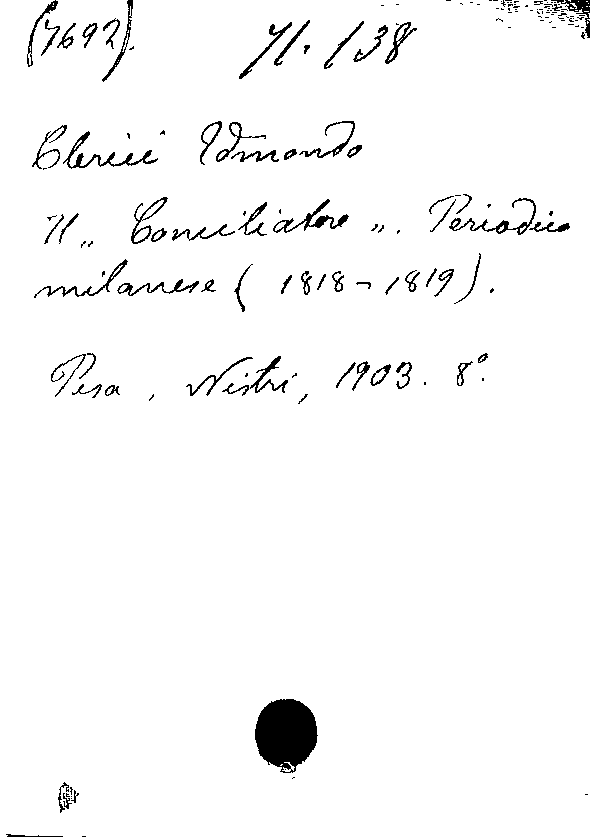 (7692).
71. 138
Clerici Edmondo
Il „ Conciliatore „. Periodico
milanese ( 1818-1819).
Pisa, Nistri, 1903. 8º.